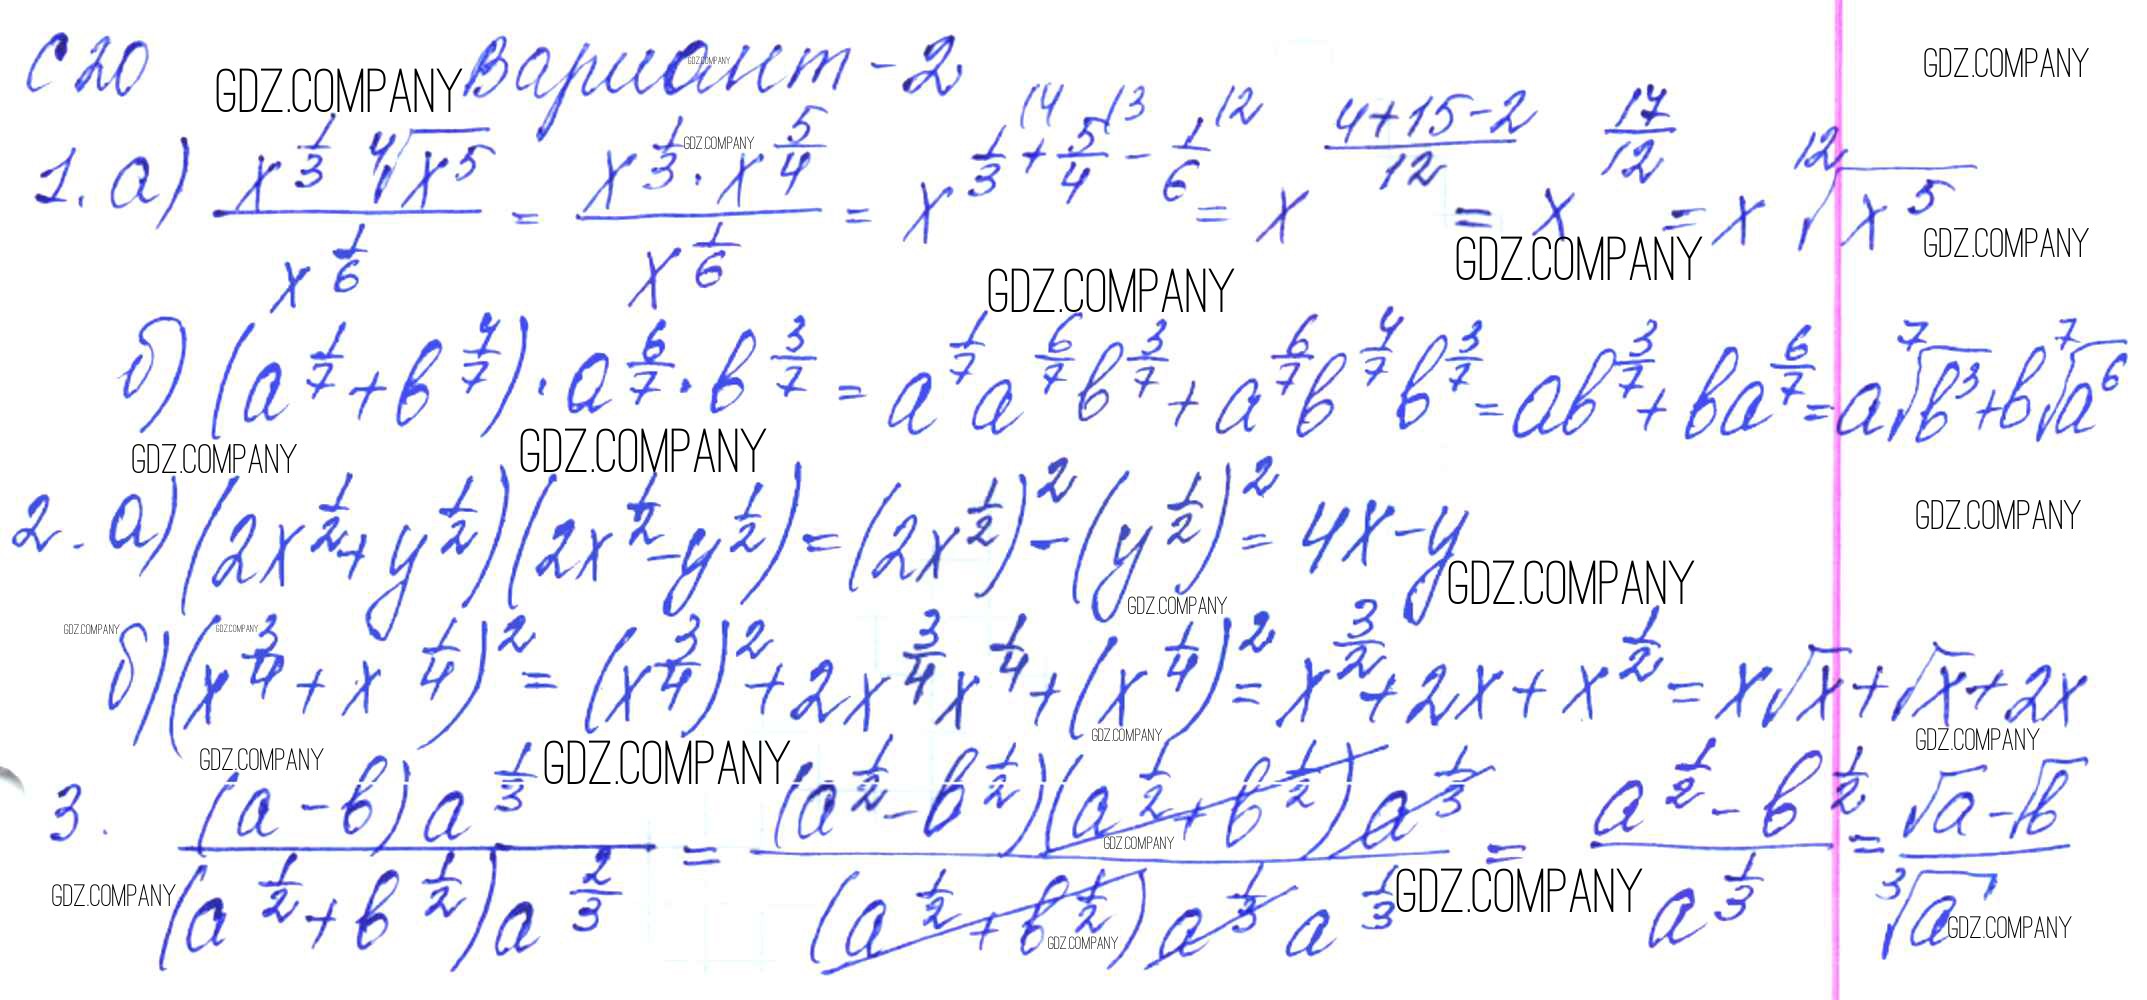 С 20 Вариант-2
1. а) \frac{x^{\frac{1}{3}} \sqrt[4]{x^5}}{x^{\frac{1}{6}}} = \frac{x^{\frac{1}{3}} \cdot x^{\frac{5}{4}}}{x^{\frac{1}{6}}} = x^{\frac{1}{3}^{(4} + \frac{5}{4}^{(3} - \frac{1}{6}^{(2}} = x^{\frac{4+15-2}{12}} = x^{\frac{17}{12}} = x \sqrt[12]{x^5}
б) (a^{\frac{1}{7}} + b^{\frac{4}{7}}) \cdot a^{\frac{6}{7}} \cdot b^{\frac{3}{7}} = a^{\frac{1}{7}} a^{\frac{6}{7}} b^{\frac{3}{7}} + a^{\frac{6}{7}} b^{\frac{4}{7}} b^{\frac{3}{7}} = ab^{\frac{3}{7}} + ba^{\frac{6}{7}} = a\sqrt[7]{b^3} + b\sqrt[7]{a^6}
2. а) (2x^{\frac{1}{2}} + y^{\frac{1}{2}})(2x^{\frac{1}{2}} - y^{\frac{1}{2}}) = (2x^{\frac{1}{2}})^2 - (y^{\frac{1}{2}})^2 = 4x - y
б) (x^{\frac{3}{4}} + x^{\frac{1}{4}})^2 = (x^{\frac{3}{4}})^2 + 2x^{\frac{3}{4}} x^{\frac{1}{4}} + (x^{\frac{1}{4}})^2 = x^{\frac{3}{2}} + 2x + x^{\frac{1}{2}} = x\sqrt{x} + \sqrt{x} + 2x
3. \frac{(a-b) a^{\frac{1}{3}}}{(a^{\frac{1}{2}} + b^{\frac{1}{2}}) a^{\frac{2}{3}}} = \frac{(a^{\frac{1}{2}} - b^{\frac{1}{2}})(a^{\frac{1}{2}} + b^{\frac{1}{2}}) a^{\frac{1}{3}}}{(a^{\frac{1}{2}} + b^{\frac{1}{2}}) a^{\frac{1}{3}} a^{\frac{1}{3}}} = \frac{a^{\frac{1}{2}} - b^{\frac{1}{2}}}{a^{\frac{1}{3}}} = \frac{\sqrt{a} - \sqrt{b}}{\sqrt[3]{a}}
GDZ.COMPANY